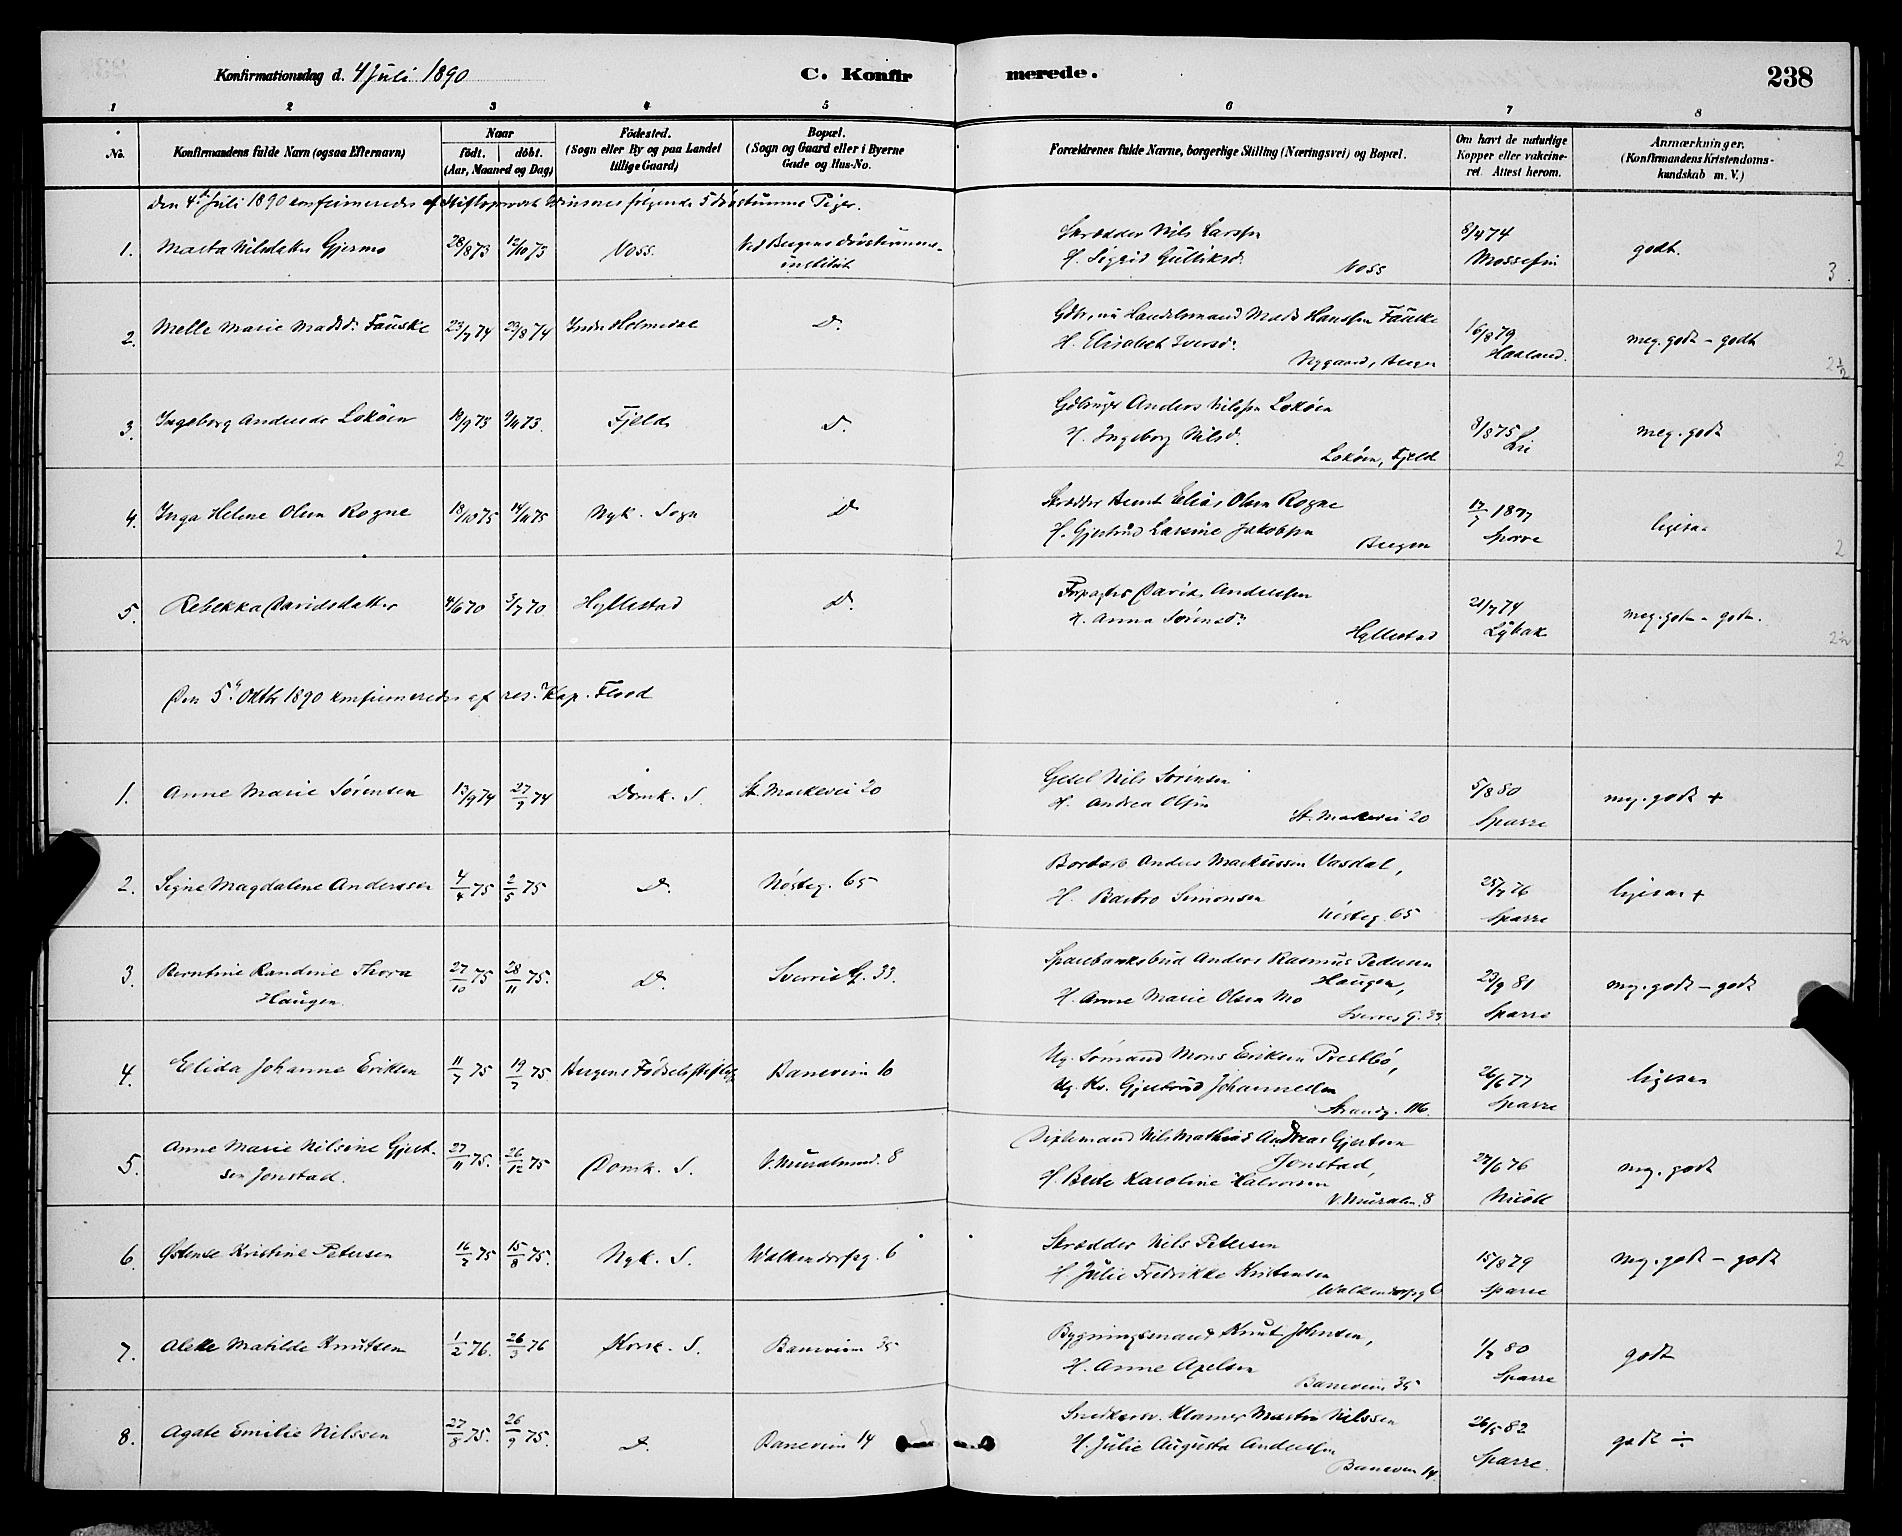 Konfirmationsdag d. 4 Juli 1890 C. Konfirmerede. 238
1 2 3 4 5 6 7 8
No. Konfirmandens fulde Navn (ogsaa Efternavn) Naar födt. döbt. (Aar, Maaned og Dag) Födested. (Sogn eller By og paa Landet tillige Gaard) Bopæl. (Sogn og Gaard eller i Byerne Gade og Hus-No. Forældrenes fulde Navne, borgerlige Stilling (Næringsvei) og Bopæl. Om havt de naturlige Kopper eller vakcineret. Attest herom. Anmærkninger. (Konfirmandens Kristendomskundskab m. V.)
Den 4de Juli 1890 konfirmeredes af følgende 5 døvstumme Piger.
1. Marta Nilsdatter Gjermo 28/8 73 12/10 73 Voss. Ved Bergens døvstumme- Skrædder Nils Larsen 8/4 74 godt.
institut H. Sigrid Gulliksd. Voss 3
2. Molle Marie Madsd. Fauske 23/7 74 29/8 74 Indre Holmedal D. Gbr, nu Handelsmand Mads Hanssen Fauske 16/8 79 meg. godt - godt
H. Elisabet Iversd. Nygaard, Bergen Haaland. 2 1/2
3. Ingeborg Andersdr Lokøen 18/9 73 9/11 73. Fjeld D. Anders Nilssen Lokøen 8/8 75 meg. godt
H. Ingeborg Nilsd. Lokøen, Fjeld Lie 2
4. Inga Helene Olsen Rogne 18/10 75 14/11 75 Nyk. Sogn D Skrædder Bernt Elias Olsen Rogne 17/7 1877 ligesaa
H. Gjertrud Lavsine Jakobsen Bergen Sparre 2
5. Rebekka Davidsdatter 4/6 70 3/7 70 Hyllestad D. Forpagter David Anderssen 21/7 74 meg. godt - godt.
H. Anna Sørensdr Hyllestad 2 1/2
Den 5te Oktbr 1890 konfirmeredes af res. Kap. Flood
1. Anne Marie Sørensen 13/9 74 27/9 74 Domk. S. St. Markevei 20 Gesel Nils Sørensen 5/8 80 mg. godt +
H. Andrea Olsen St. Markevei 20 Sparre
2. Signe Magdalene Anderssen 4/4 75 2/5 75 D. Nøsteg. 65 Anders Markussen Vasdal, 25/7 76 ligesaa +
H. Barbro Simonsen Nøsteg. 65 Sparre
3. Berntine Randine Thora 27/10 75 28/11 75. D. Sverres G. 33. Sparebanksbud Anders Rasmus Pedersen 23/9 81 mg. godt - godt
Haugen. Haugen,
H. Anne Marie Olsen Mo Sverres G. 33 Sparre
4. Elida Johanne Eriksen 11/7 75 19/7 75. Bergens Fødselsstiftelse Baneveien 10 Ug. Sømand Mons Eriksen Prestbø, 26/6 77 ligesaa
Ug. Kv. Gjertrud Johannessen Strandg. 116. Sparre
5. Anne Marie Nilsine Gjert- 27/11 75. 26/12 75 Domk. S. V. Muralmend. 8 Nils Mathias Andreas Gjertsen 27/6 76 mg. godt
sen Jonstad. Jonstad,
H. Berte Karoline Halvorsen V. Muralm. 8
6. Østense Kristine Petersen 16/7 75 15/8 75. Nyk. S. Walkendorfsg. 6 Skrædder Nils Petersen 15/8 79 mg. godt - godt
H Julie Fredrikke Kristensen Walkendorfsg 6 Sparre
7. Alette Matilde Knutsen 1/2 76. 26/3 76 Korsk. S. Baneveien 35 Bygningsmand Knut Johnsen, 1/7 80 godt
H. Anne Axelsen Baneveien 35 Sparre
8. Agate Emilie Nilssen 27/8 75. 26/9 75. D. Baneveien 14 Snedkersv. Klamer Martin Nilssen 26/5 82 godt ÷
H. Julie Augusta Anderssen Baneveien 14. Sparre.